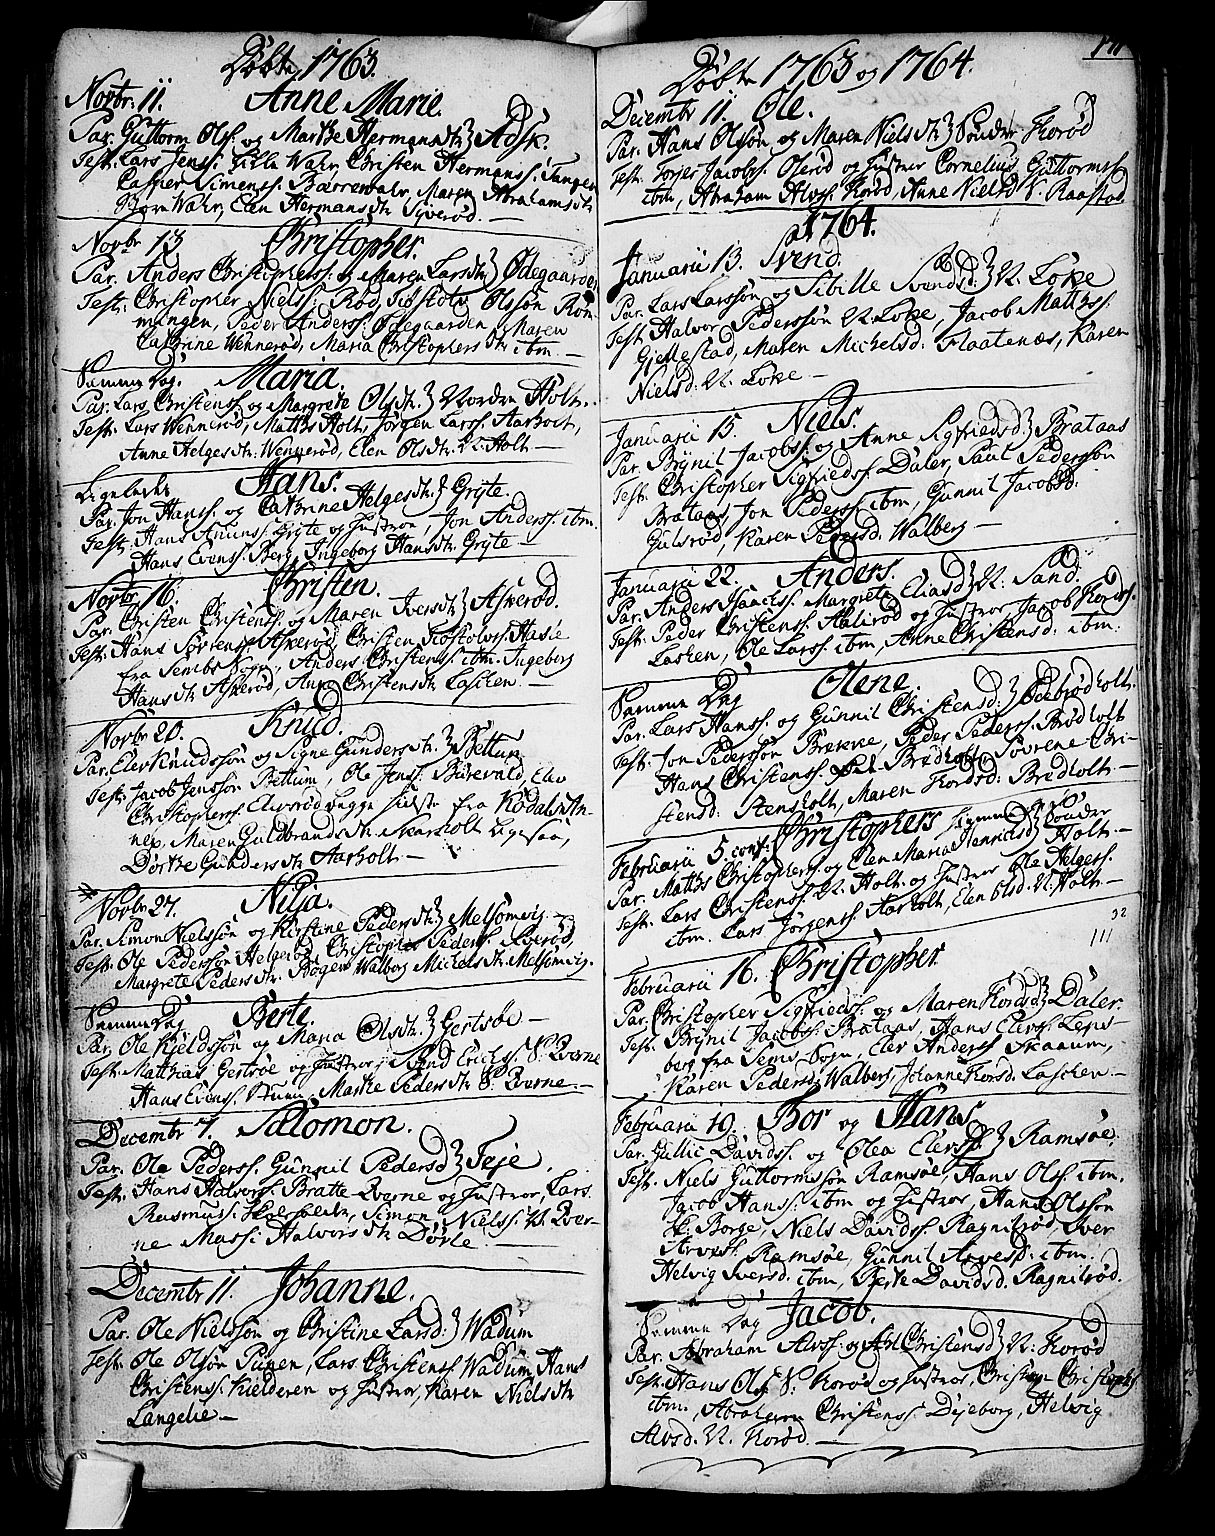 Døbte 1763.
Novbr. 11. Anne Marie.
Par. Guttorm Olss. og Marthe Hermansdtr. Adsk.
Test. Lars Jenss. Wahr, Christen Hermanss. Tangen
Casper Simenss. Bærrevahr, Maren Abrahamsdtr.
Biørn Wahr, Elen Hermansdtr. Syverød.
Novbr 13 Christopher.
Par. Anders Christopherss. og Maren Larsdtr. Ødegaarden
Test. Christopher Nielss. Rød, Olssøn Røn-
ningen, Peder Anderss. Ødegaarden, Maren
Cathrine Wennerød, Maria Christophersdtr. ibm.
Samme Dag. Maria.
Par. Lars Christenss. og Margrete Olsdtr. Nordre Holt.
Test. Lars Wennerød, Matths Holt, Jørgen Larss. Aarholt,
Anne Helgesdtr. Wennerød, Elen Olsdtr. N. Holt
Ligeledes Hans.
Par. Jon Hanss. og Cathrine Helgesdtr. Gryte.
Test. Hans Amunss. Gryte og Hustroe, Jon Anderss. ibm.
Hans Evenss. Berg, Ingeborg Hansdtr. Gryte
Novbr 16. Christen.
Par. Christen Christenss. og Maren Iversdtr. Askerød.
Test. Hans Sørenss. Askerød, Christen Hasle
fra Semb Sogn, Anders Christenss. ibm. Ingeborg
Hansdtr. Askerød, Anne Christensdtr. Lasken.
Novbr 20. Knud.
Par. Elev Knudssøn og Signe Gundersdtr. Bettum
Test. Jacob Jenssøn Bettum, Ole Jenss. Burevald, Elev
Christopherss. Alverød begge sidste fra Kodals An-
nex, Maren Guldbrandsdtr. Skarsholt Ligesaa,
Dorthe Gundersdtr. Aarholt
Novbr 27. Nilia.
Par. Simon Nielssøn og Kirstine Pedersdtr. Melsomvig
Test. Ole Pederssøn Helgerød, Christopher Pederss.
Margrete Pedersdtr. Bøgen Walborg Michelsdtr. Melsomvig.
Samme Dag Berte.
Par. Ole Kieldssøn og Maria Olsdtr. Gertsøe
Test. Matthias Gertsøe og Hustroe, Svend Erichss. S. Qverne
Hans Evenss. Stuun, Marthe Pedersdtr. S. Qverne.
Decembr 7. Salomon.
Par. Ole Pederss. Gunnil Pedersd Feje.
Test. Hans Halvorss. Bratte Qverne og Hustroe, Lars
Rasmuss. Simon Nielss. N. Qver-
ne Massi Halvorsdtr. Dørle.
Decembr 11. Johanne.
Par. Ole Nielssøn og Christine Larsd. Wadum
Test. Ole Olsøn Punen, Lars Christenss. Wadum Hans
Christenss. Kielderen og Hustroe, Karen Nielsdtr.
Langelie
Døbte 1763 og 1764.
Decembr 11. Ole.
Par. Hans Olssøn, og Maren Nielsdtr. Sønder Korød
Test. Torjer Jacobss. Oserød og Hustroe Cornelius Guttormss.
ibm, Abraham Alvss. Korød, Anne Nielsd N. Raastad.
1764.
Januarii 13. Svend.
Par. Lars Larssøn og Sibille Svendsd. N. Løke
Test. Halvor Pederssøn N. Løke, Jacob Matthss.
Gjellestad, Maren Michelsd: Flaatenæs, Karen
Nielsd: N. Løke
Januarii 15. Niels.
Par. Brynil Jacobss. og Anne Sigfriedsd. Brataas
Test. Christopher Sigfriedss. Daler, Paul Pederssøn
Brataas, Jon Pederss. ibm, Gunnil Jacobsd.
Gulsrød, Karen Pedersd. Walberg
Januarii 22. Anders.
Par. Anders Isachss. Margrete Eliasd. N. Sand.
Test. Peder Christenss. og Hustroe Jacob Kordss.
Lasken, Ole Larss. ibm, Anne Christensd. ibm.
Samme Dag Olene.
Par. Lars Hanss. og Gunnil Christensd. Brødholt.
Test. Jon Pederssøn Brekke, Peder Pederss. Brødholt
Hans Christenss. Bredholt, Sovrene Chri-
stensd: Stensholt, Maren Kordsd: Bredholt
Februarii 5. conf. Christophers
Par. Matths Christopherss. og Elen Maria Henricsd. Sønder Holt.
Test. Lars Christenss. N. Holt og Hustroe Ole Helgess.
ibm. Lars Jørgenss. Aarholt, Elen Olsd. N. Holt
32
111
Februarii 16. Christopher
Par. Christopher Sigfriedss. og Maren Kordsd. Daler.
Test. Brynil Jacobss. Brataas, Hans Elevss. Leps-
berg fra Sems Sogn, Elev Anderss. Skaaum,
Karen Pedersd. Walberg, Johanne Kordsd. Lasken.
Februarii 19. Bor og Hans.
Par. Gullic Davidss. og Olea Elevsd. Ramsøe
Test. Niels Guttormssøn Ramsøe, Hans Olss. ibm.
Jacob Hanss. ibm og Hustroe, Hans Olssøn
Sk. Borge, Niels Davidss. Ragnilrød, Iver
Arvess. Ramsøe, Gunnil Arvesd. ibm.
Helvig Iversd: ibm, Berte Davidsd. Ragnilrød.
Samme Dag Jacob.
Par. Abraham Alvss. og Christensd. N. Korød
Test. Hans Olss. S. Korød og Hustroe, Christen Christophss.
ibm, Abraham Christenss. Dyeborg, Helvig
Alvsd. N. Korød.